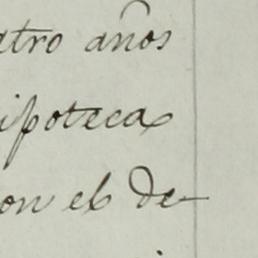 atro años
ipoteca
on el de-